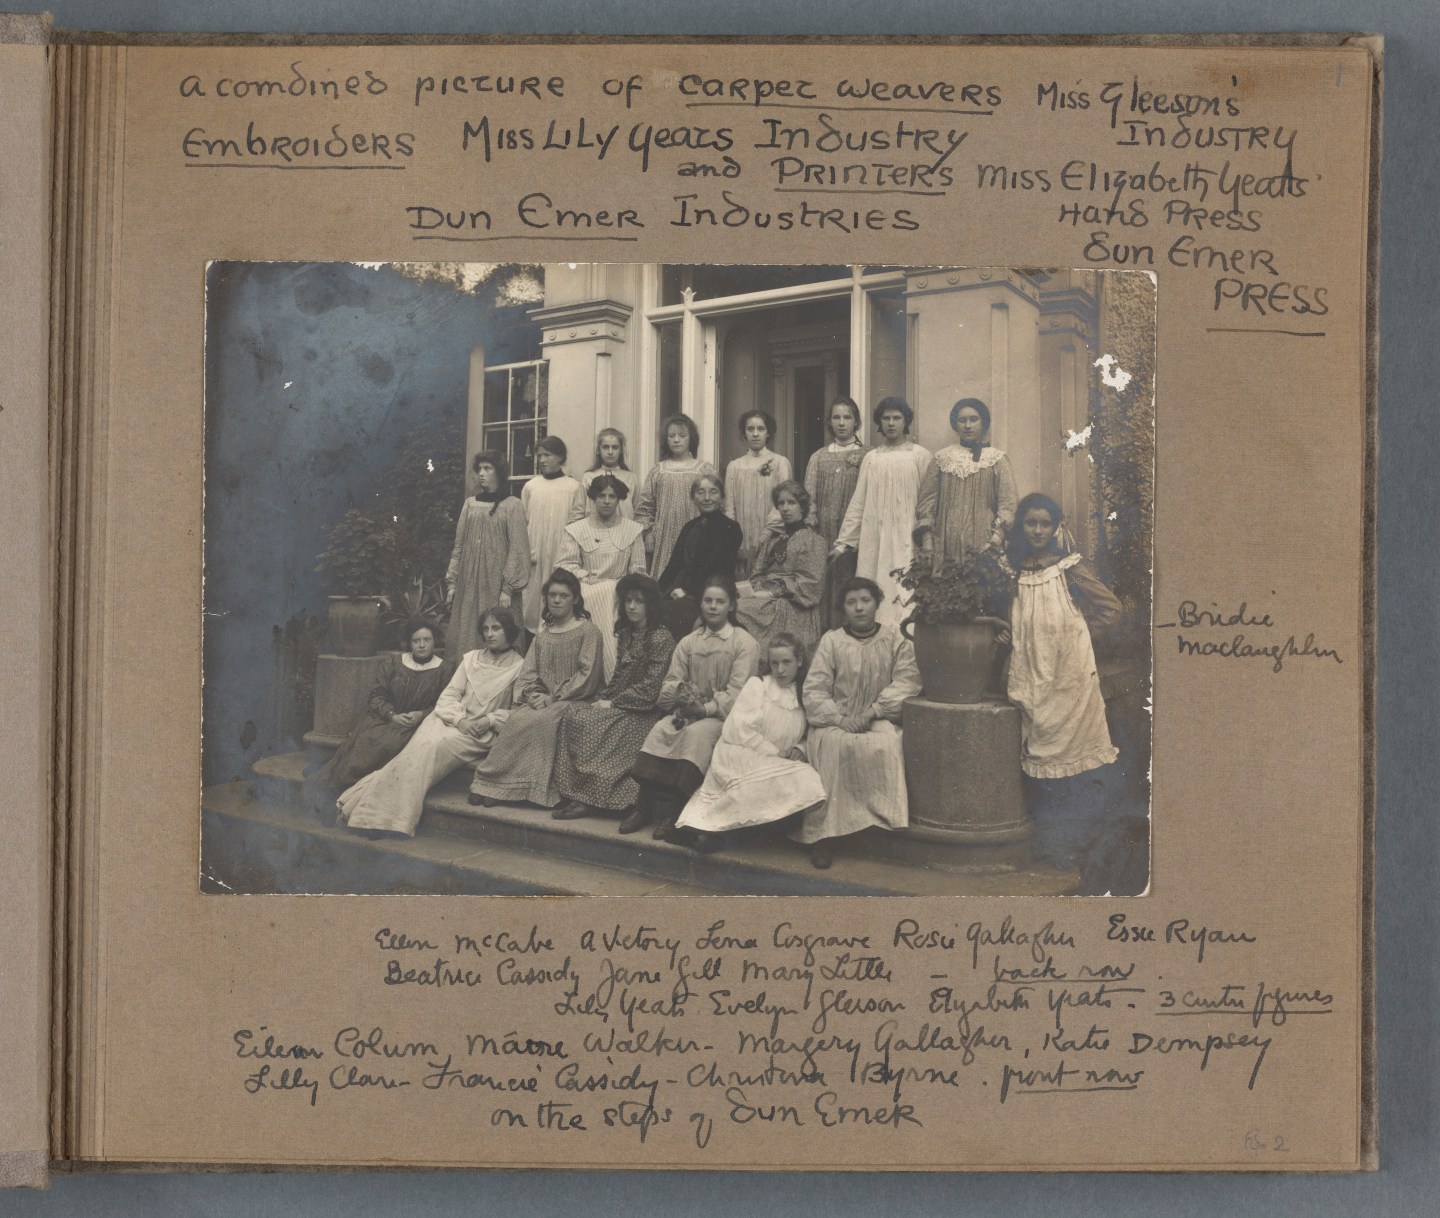 a combined picture of carpet weavers Miss Gleeson's
Industry
Embroiders Miss Lily Yeats Industry
and Printers Miss Elizabeth Yeats'
Hand Press
Dun Emer Industries
Dun Emer
Press
Bridie
Maclaughlin
Ellen McCabe a Victory Lena Cosgrave Rosie Gallagher Essie Ryan
Beatrice Cassidy Jane Gill Mary Little – back row.
Lily Yeats Evelyn Gleeson Elizabeth Yeats - 3 centre figures
Eileen Colum, Máire Walker - Margery Gallagher, Katie Dempsey
Lilly Clare - Francie Cassidy - Christina Byrne. front row
on the steps of Dun Emer